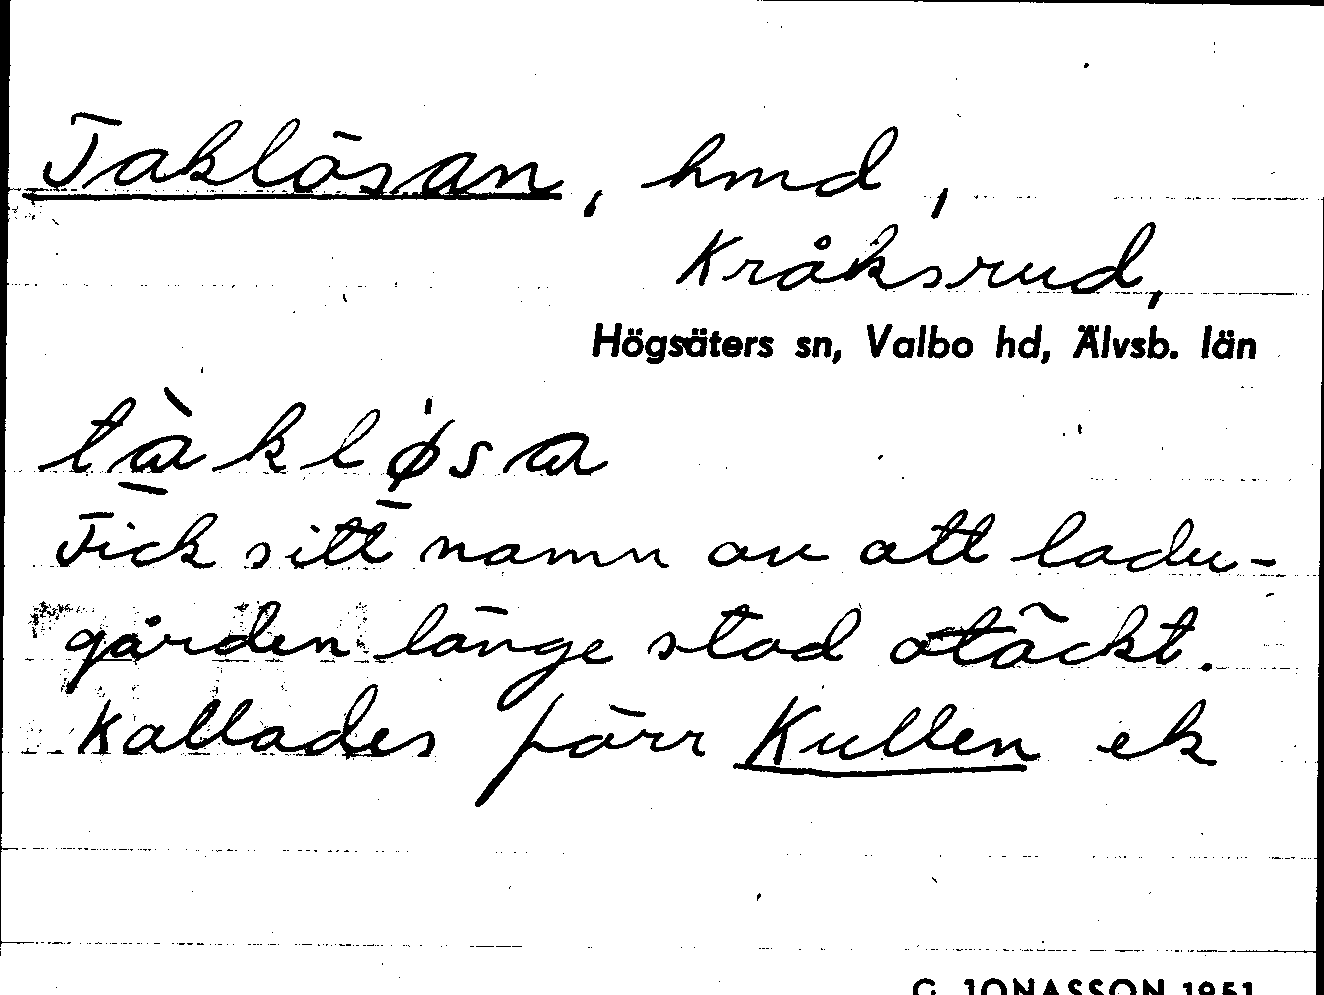 Taklösan, hmd,
Kråksrud,
Högsäters sn, Valbo hd, Älvsb. län
tàkløsa
Fick sitt namn av att ladu-
gården länge stod otäckt.
Kallades förr Kullen ek
G. JONASSON 1951